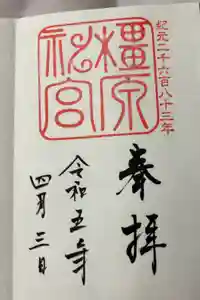 紀元二千六百八十三年
奉拝
橿原神宮
令和五年
四月三日